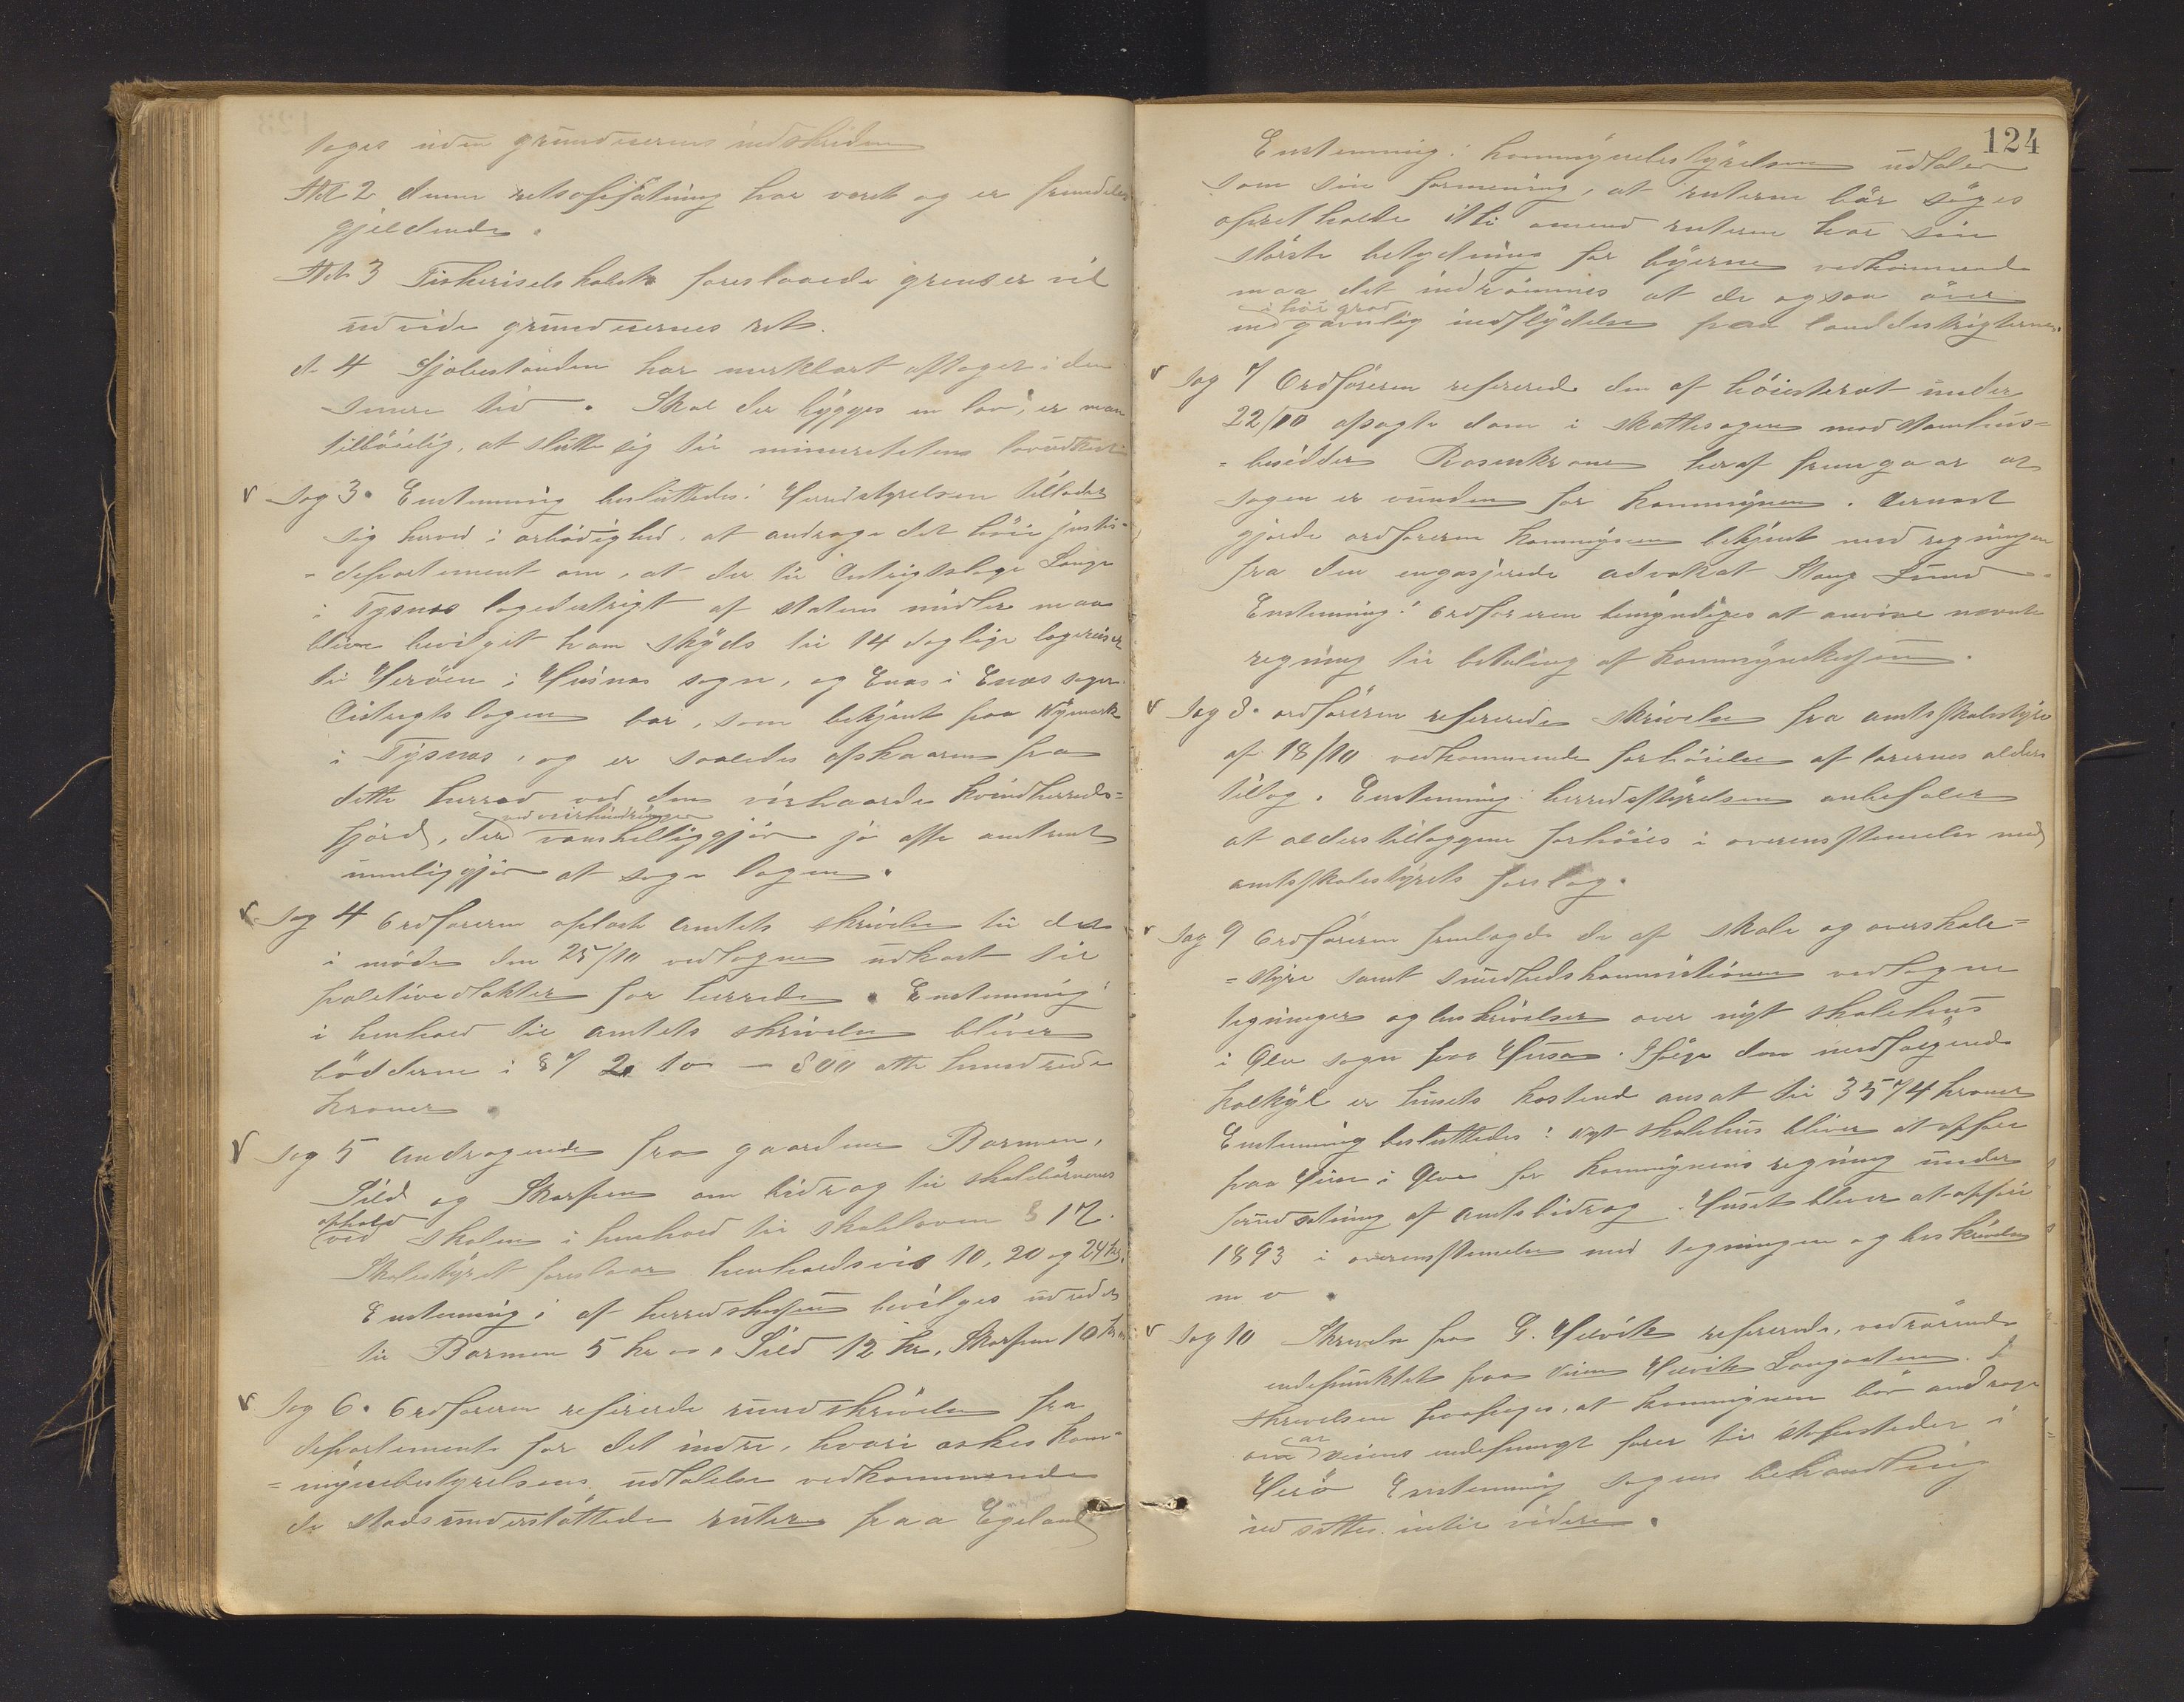 toges uden grundeierens indskriden
Ad 2 denne retsopfatning har været og er fremdeles
gjeldende.
Ad 3 Fiskeriselskabets foreslaaede grenser vil
udvide grundeiernes ret.
d. 4 Hjolbestanden har merkbart aftaget i den
senere tid. Skal der bygges en lov, er man
tilböielig, at slutte sig til minoritetens lovudkast
Sag 3. Enstemmig besluttedes: Herredstyrelsen tillader
sig herved i ærbödighed, at andrage det höie justis-
-departement om, at der til Distrigtslæge Lange
i Tysnæs lægedistrigt af statens midler maa
blive bevilget ham skyds til 14 daglige lægereiser
til Heröen i Husnæs sogn, og Enæs i Enæs sogn.
Distrigtslægen bor, som bekjent paa Nymark
i Tysnæs, og er saaledes afskaaren fra
dette herred ved den veirhaarde Kvindherreds=
ved veirhindringer
fjord, der vanskelliggjör jo ofte omtrent
umuliggjör at søge lægen.
Sag 4 Ordföreren oplæste Amtets skrivelse til det
i möde den 25/10 vedtagne udkast til
politivedtekter for herredet. Enstemmig:
i henhold til amtets skrivelse bliver
bödderne i § 7 2 to – 800 otte hundrede
kroner
Sag 5 Andragende fra gaardene Barmen,
Sild og Skorpen om bidrag til skolebörnenes
ophold
ved skolen i henhold til skoleloven § 17.
Skolestyret foreslaar henholdsvis 10, 20 og 24 kr.
Enstemmig: af herredskassen bevilges udredet
til Barmen 5 kr, Sild 12 kr, Skorpen 10 kr
Sag 6. Ordföreren refererede rundskrivelse fra
departementet for det indre, hvori æskes kom-
=mynebestyrelsens udtalelse vedkommende
de statsunderstöttede ruter paa Egeland
124
Enstemmig: Kommynebestyrelsen udtaler
som sin formening, at ruterne bör söges
opretholdte thi omend ruterne har sin
störste betydning for byerne vedkommende
maa det indrömmes at de ogsaa över
i höi grad
en gavnlig indflydelse paa landdistrigterne.
Sag 7 Ordföreren refererede den af höiesteret under
22/10 afsagte dom i skattesagen mod Stamhus-
=besidder Rosenkrone heraf fremgaar at
sagen er vunden for Kommynen. Dernæst
gjorde ordföreren Kommynen bekjent med regningen
fra den engasjerede advokat Stang Lund.
Enstemmig: ordföreren bemyndiges at anvise nævnte
regning til betaling af Kommynekassen.
Sag 8. ordföreren refererede skrivelse fra amtsskolestyre
af 18/10 vedkommende forhöielse af lærernes alders
tillæg. Enstemmig: herredsstyrelsen anbefaler
at alderstillæggene forhöies i overensstemmelse med
amtsskolestyrets forslag.
Sag 9 Ordföreren fremlagde de af skole og overskole-
=styre samt sundhedskommisionen vedtagne
tegninger og beskrivelser over nyt skolehus
i Ølve sogn paa Husa. Ifölge den medfölgende
kalkyl er husets kostende ansat til 3574 kroner
Enstemmig besluttedes: Nyt skolehus bliver at opföre
paa Huse i Ølve for Kommynens regning under
forudsætning af amtsbidrag. Huset bliver at opföre
1893 i overensstemmelse med tegningen og beskrivelse
m v.
Sag 10 Skrivelse fra G. Helvik refererede, vedrörende
endepunktet paa Veien Helvik Langaaten. I
skrivelsen paapeges, at kommynen bör andrage
om at veiens endepungt fører til stoppestedet i
Herö Enstemmig sagens behandling
udsættes indtil videre.